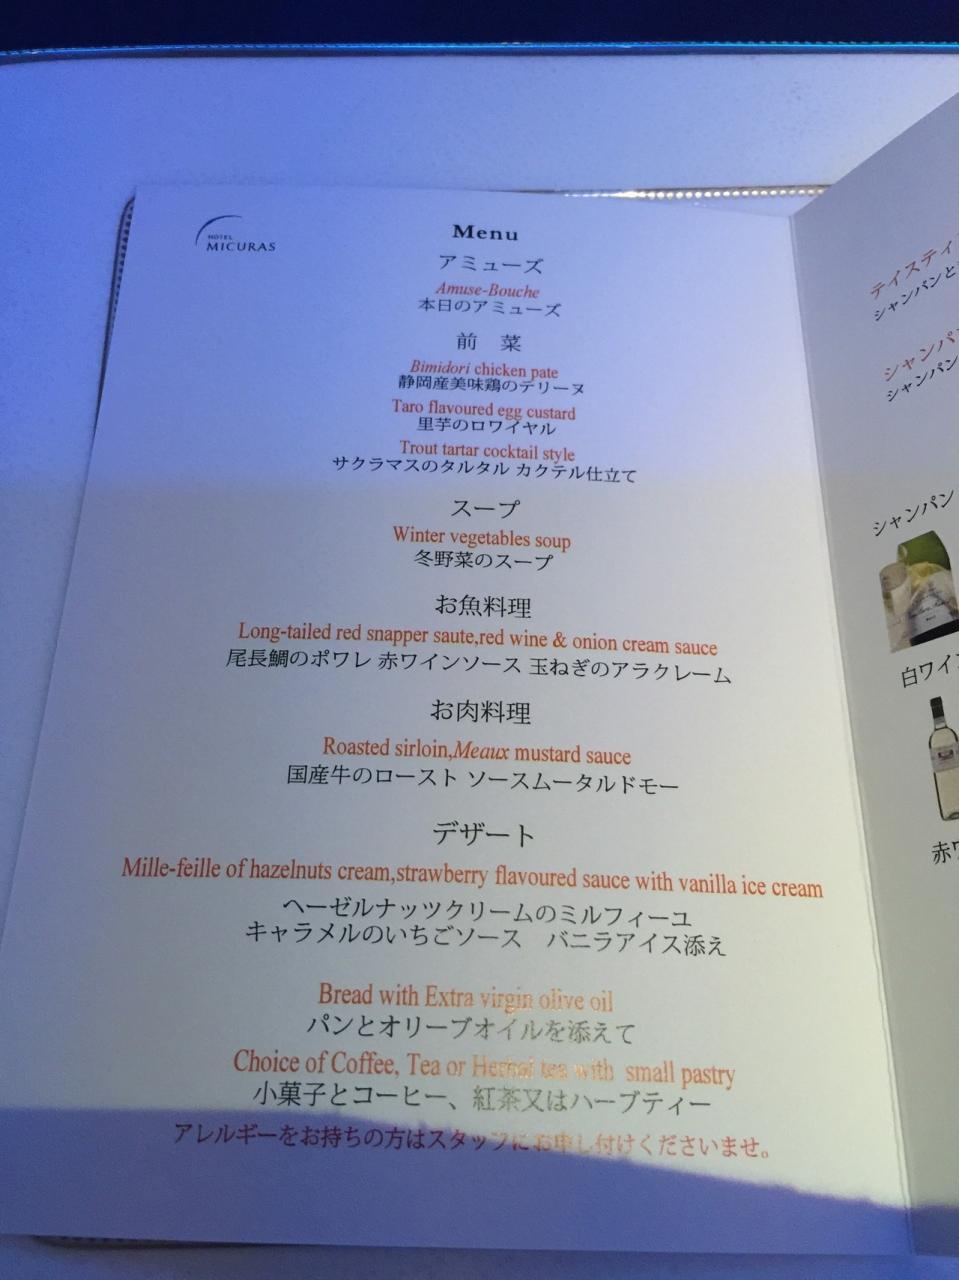 HOTEL
MICURAS
Menu
アミューズ
Amuse-Bouche
本日のアミューズ
前 菜
Bimidori chicken pate
静岡産美味鶏のテリーヌ
Taro flavoured egg custard
里芋のロワイヤル
Trout tartar cocktail style
サクラマスのタルタル カクテル仕立て
スープ
Winter vegetables soup
冬野菜のスープ
お魚料理
Long-tailed red snapper saute,red wine & onion cream sauce
尾長鯛のポワレ 赤ワインソース 玉ねぎのアラクレーム
お肉料理
Roasted sirloin,Meaux mustard sauce
国産牛のロースト ソースムータルドモー
デザート
Mille-feille of hazelnuts cream,strawberry flavoured sauce with vanilla ice cream
ヘーゼルナッツクリームのミルフィーユ
キャラメルのいちごソース バニラアイス添え
Bread with Extra virgin olive oil
パンとオリーブオイルを添えて
Choice of Coffee, Tea or Herbal tea with small pastry
小菓子とコーヒー、紅茶又はハーブティー
アレルギーをお持ちの方はスタッフにお申し付けくださいませ。
テイスティ
シャンパンと
シャンパ
シャンパン
シャンパン
白ワイン
赤ワ